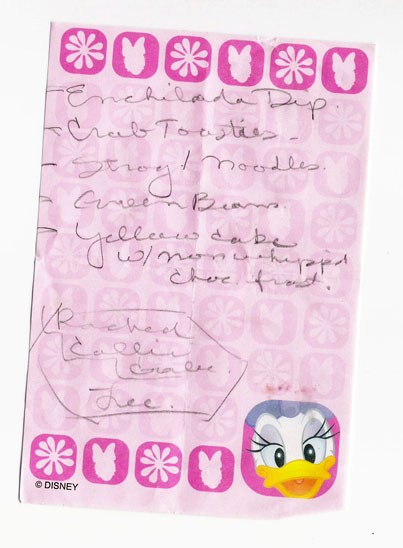 - Enchilada Dip.
- Crab Toasties -
- Strog / Noodles.
- Green Beans.
- Yellow cake
w/ non whipp'd
choc frost.
Rachael
Callie
Gabe
Lee.
© DISNEY